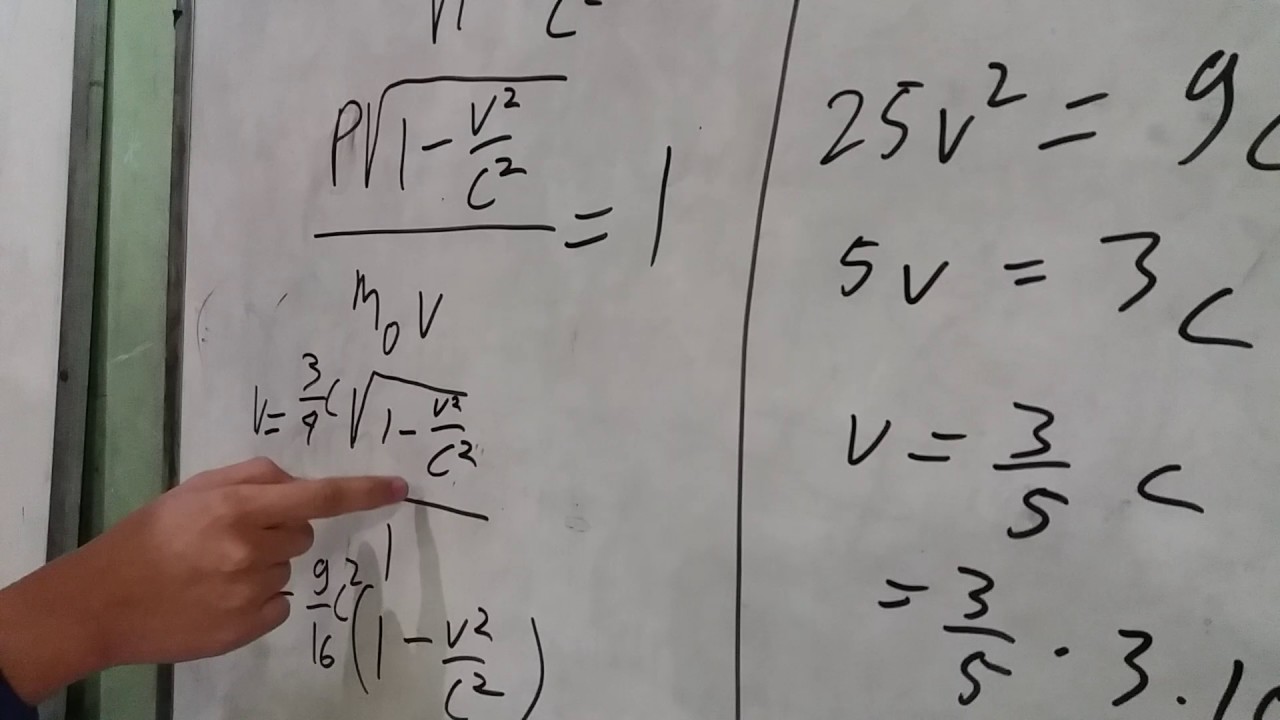 P√(1 - v²/c²) / m₀v = 1
v = 3/4 c √(1 - v²/c²) / 1
9/16 c² (1 - v²/c²)
25v² = 9c
5v = 3c
v = 3/5 c
= 3/5 · 3.10